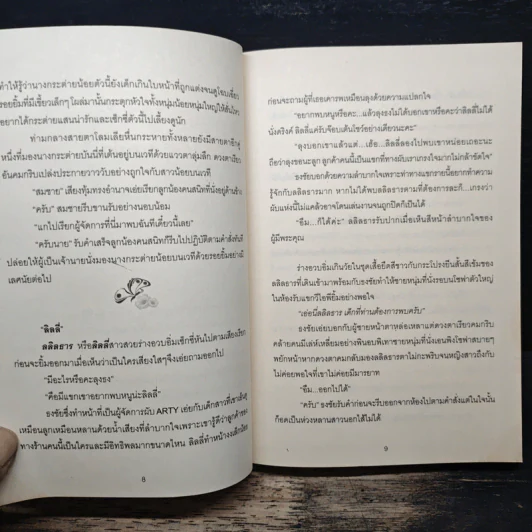 ทำให้รู้ว่านางกระต่ายน้อยตัวนี้ยังเด็กเกินใบหน้าที่ถูกแต่งจนดูโฉบเฉี่ยว
รอยยิ้มที่มีเขี้ยวเล็กๆ โผล่มานั้นกระตุกหัวใจทั้งหนุ่มน้อยหนุ่มใหญ่ให้สั่นไหว
อยากได้กระต่ายแสนน่ารักและเซ็กซี่ตัวนี้ไปเลี้ยงดูนัก
ท่ามกลางสายตาโลมเลียหื่นกระหายทั้งหลายยังมีสายตาอีกคู่
หนึ่งที่มองนางกระต่ายบันนี่ที่เต้นอยู่บนเวทีด้วยแววตาลุ่มลึก ดวงตาเรียว
อันคมกริบเปล่งประกายวาววับอย่างถูกใจกับสาวน้อยบนเวที
“สมชาย” เสียงทุ้มทรงอำนาจเอ่ยเรียกลูกน้องคนสนิทที่นั่งอยู่ด้านข้าง
“ครับ” สมชายรีบขานรับอย่างนอบน้อม
“แกไปเรียกผู้จัดการที่นี่มาพบฉันทีเดี๋ยวนี้เลย”
“ครับนาย” รับคำเสร็จลูกน้องคนสนิทก็รีบไปปฏิบัติตามคำสั่งทันที
ปล่อยให้ผู้เป็นเจ้านายนั่งมองนางกระต่ายน้อยบนเวทีด้วยรอยยิ้มอย่างมี
เลศนัยต่อไป
“ลิลลี่”
ลลิลธาร หรือลิลลี่สาวสวยร่างอวบอิ่มเซ็กซี่หันไปตามเสียงเรียก
ก่อนจะยิ้มออกมาเมื่อเห็นว่าเป็นใครเสียงใสๆ จึงเอ่ยถามออกไป
“มีอะไรหรือคะลุงธง”
“คือมีแขกเขาอยากพบหนูน่ะลิลลี่”
ธงชัยซึ่งทำหน้าที่เป็นผู้จัดการผับ ARTY เอ่ยกับเด็กสาวที่เขาเอ็นดู
เหมือนลูกเหมือนหลานด้วยน้ำเสียงที่ลำบากใจเพราะเขารู้ดีว่าลูกค้าของ
ทางร้านคนนี้เป็นใครและมีอิทธิพลมากขนาดไหน ลิลลี่ทำหน้างงเล็กน้อย
8
ก่อนจะถามผู้ที่เธอเคารพเหมือนลุงด้วยความแปลกใจ
“อยากพบหนูหรือคะ...แล้วลุงธงไม่ได้บอกเขาหรือคะว่าลิลลี่ไม่ได้
นั่งดริงค์ ลิลลี่แค่รับจ๊อบเต้นโชว์อย่างเดียวนะคะ”
“ลุงบอกเขาแล้วแต่...เฮ้อ...ลิลลี่ลองไปพบเขาหน่อยเถอะนะ
ถือว่าลุงขอนะลูก ลูกค้าคนนี้เป็นแขกที่ทางผับเราเกรงใจมากไม่กล้าขัดใจ”
ธงชัยบอกด้วยความลำบากใจเพราะท่าทางแขกรายนี้อยากทำความ
รู้จักกับลลิลธารมาก หากไม่ได้พบลลิลธารตามที่ต้องการล่ะก็...เกรงว่า
ผับแห่งนี้ไม่แคล้วอาจโดนเล่นงานจนถูกปิดก็เป็นได้
“อืม...ก็ได้ค่ะ” ลลิลธารรับปากเมื่อเห็นสีหน้าลำบากใจของ
ผู้มีพระคุณ
ร่างอวบอิ่มเกินวัยในชุดเสื้อยืดสีขาวกับกระโปรงยีนสั้นสีเข้มของ
ลลิลธารที่เดินเข้ามาพร้อมกับธงชัยทำให้ชายหนุ่มที่นั่งรอบนโซฟาตัวใหญ่
ในห้องรับแขกวีไอพียิ้มอย่างพอใจ
“เอ่อนี่ลลิลธาร เด็กที่ท่านต้องการพบครับ”
ธงชัยเอ่ยบอกกับผู้ชายหน้าตาหล่อเหลาแต่ดวงตาเรียวคมกริบ
คล้ายคนมีเล่ห์เหลี่ยมอย่างพินอบพิเทาชายหนุ่มที่นั่งเอนพิงโซฟาสบายๆ
พยักหน้าหากดวงตาคมกลับมองลลิลธารตาไม่กะพริบจนหญิงสาวถึงกับ
ไม่ค่อยพอใจที่เขาไม่ค่อยมีมารยาท
“อืม...ออกไปได้”
“ครับ” ธงชัยรับคำก่อนจะรีบออกจากห้องไปตามคำสั่งแต่ในใจนั้น
ก็อดเป็นห่วงหลานสาวนอกไส้ไม่ได้
9